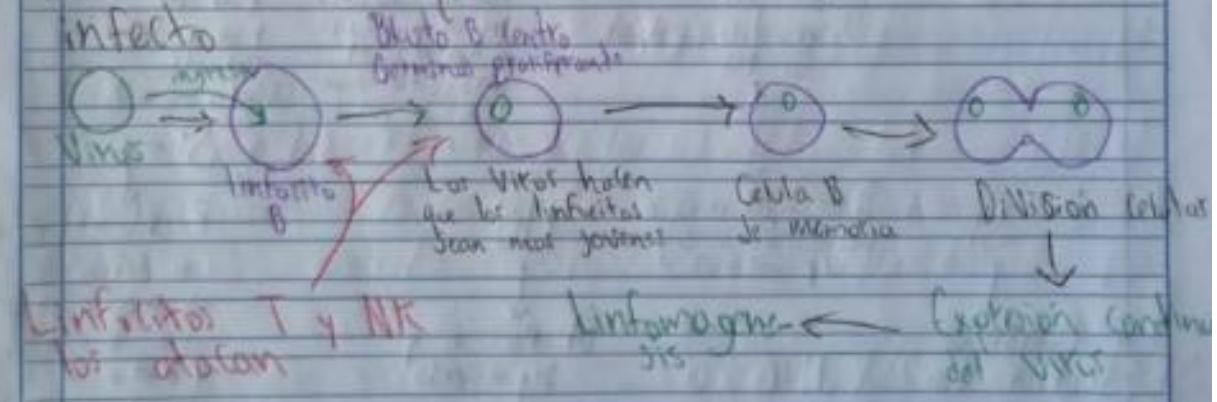 infecto
Blasto B centro
Germinal proliferante
ingresa
Virus
linfocito
B
Los Virus hacen
que los linfocitos
sean mas jovenes
Celula B
de memoria
División celular
Linfocitos T y NK
los atacan
Linfomagne-
sis
continu
del Virus